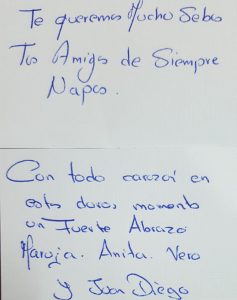 Te queremos Mucho Sebas
Tus Amigos de Siempre
Napos.
Con todo corazón en
estos duros momento
un Fuerte Abrazo
Maruja. Anita. Vero
y Juan Diego